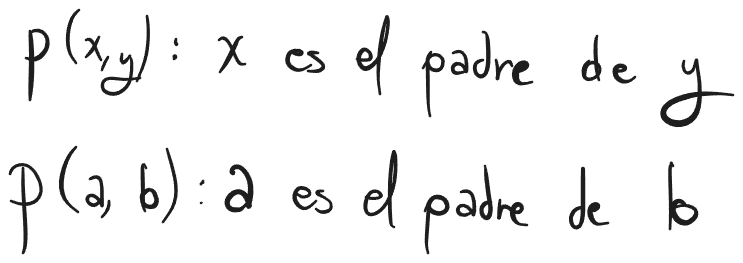 p(x,y): x es el padre de y
p(a, b): a es el padre de b